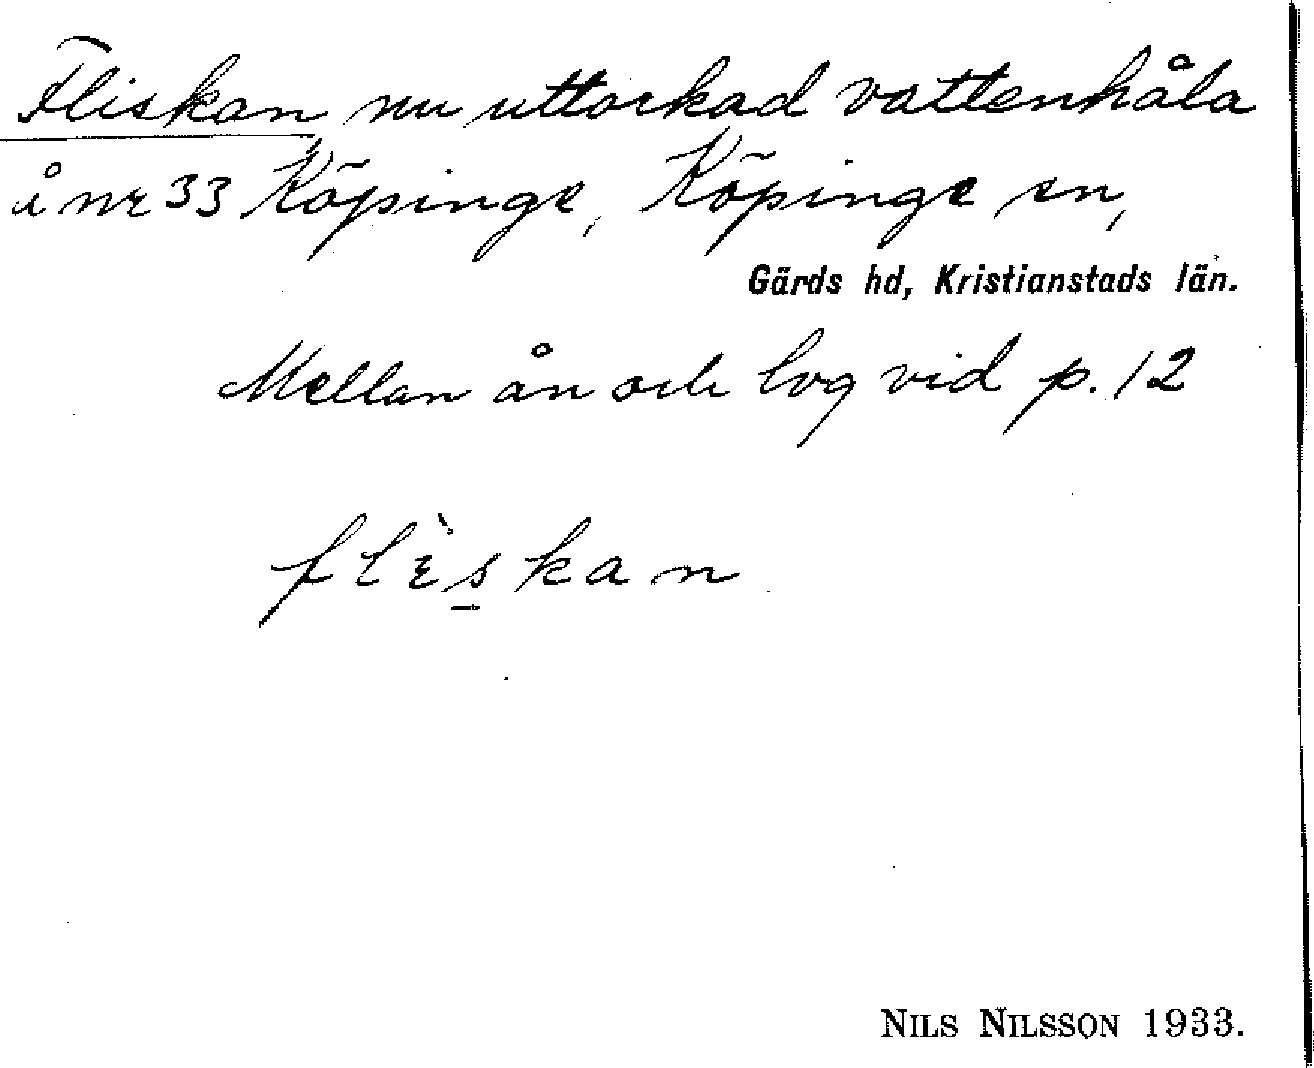 Fliskan nu uttorkad vattenhåla
å nr 33 Köpinge, Köpinge sn,
Gärds hd, Kristianstads län.
Mellan ån och lvg vid p. 12
flèskan
NILS NILSSON 1933.